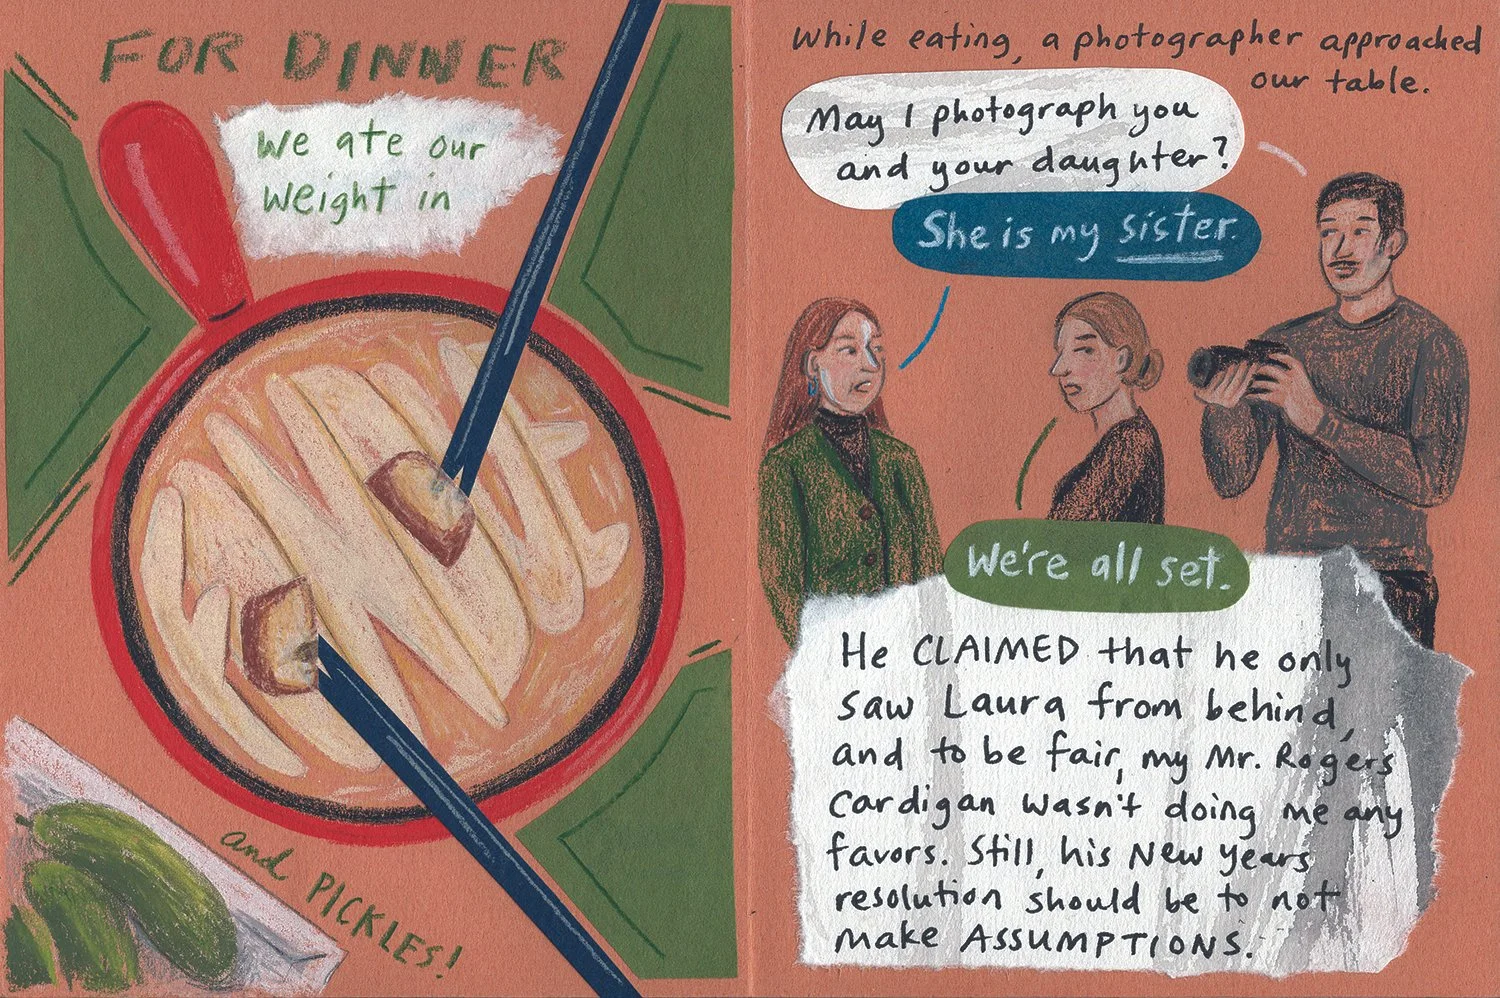 FOR DINNER
We ate our
weight in
and PICKLES!
While eating, a photographer approached
our table.
May I photograph you
and your daughter?
She is my sister.
We're all set.
He CLAIMED that he only
saw Laura from behind,
and to be fair, my Mr. Rogers
Cardigan wasn't doing me any
favors. Still, his New Years
resolution should be to not
make ASSUMPTIONS.